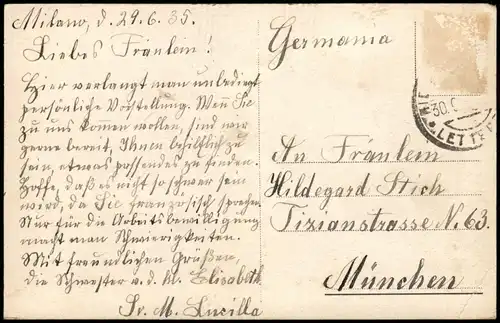 Milano, d. 29.6.35.
Liebes Fräulein!
Hier verlangt man unbedingt
persönliche Vorstellung. Wenn Sie
zu uns kommen wollen, sind wir
gerne bereit, Ihnen behilflich zu
sein, etwas passendes zu finden.
Hoffe, daß es nicht so schwer sein
wird, da Sie französisch sprechen.
Nur für die Arbeitsbewilligung
macht man Schwierigkeiten.
Mit freundlichen Grüßen,
die Schwester v. d. hl. Elisabeth
Sr. M. Lucilla
Germania
30.
LETTE
An Fräulein
Hildegard Stich
Tizianstrasse N. 63.
München